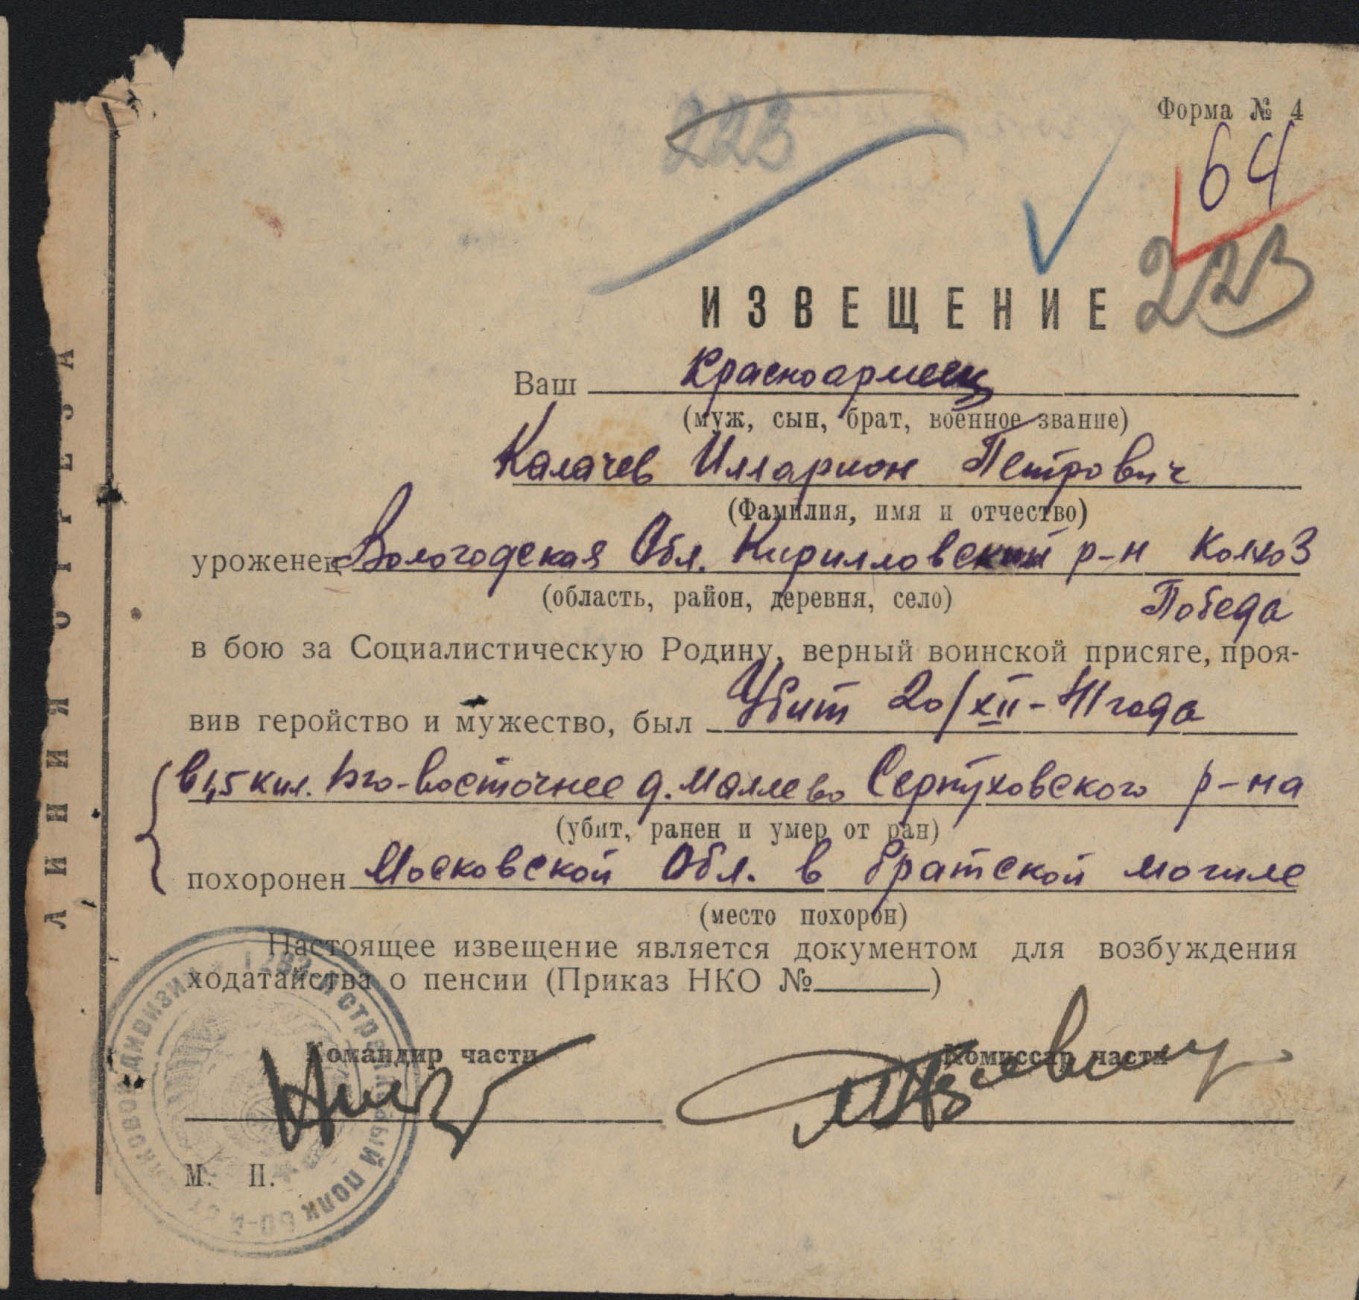 Форма № 4
223
64
223
ИЗВЕЩЕНИЕ
Ваш Красноармеец
(муж, сын, брат, военное звание)
Калачев Илларион Петрович
(Фамилия, имя и отчество)
уроженец Вологодская Обл. Кирилловский р-н Колхоз
(область, район, деревня, село) Победа
в бою за Социалистическую Родину, верный воинской присяге, проя-
вив геройство и мужество, был Убит 20/XII-41 года
в 1,5 кил. Юго-восточнее д. Маллево Серпуховского р-на
(убит, ранен и умер от ран)
похоронен Московской Обл. в братской могиле
(место похорон)
Настоящее извещение является документом для возбуждения
ходатайства о пенсии (Приказ НКО №______)
Командир части Комиссар части
М. П.
ЛИНИЯ ОТРЕЗА
СТРЕЛКОВЫЙ ПОЛК 60-й СТРЕЛКОВОЙ ДИВИЗИИ